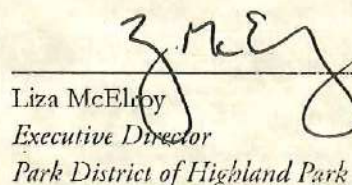 Liza McElroy
Executive Director
Park District of Highland Park